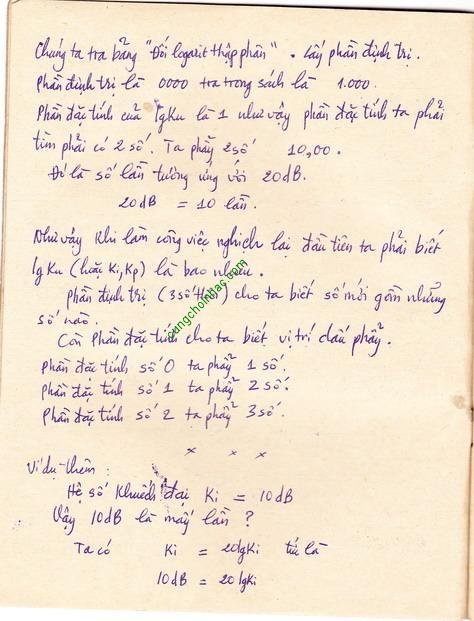 Chúng ta tra bảng "Đối logarit thập phân". Lấy phần định trị.
Phần định trị là 0000 tra trong sách là 1.000.
Phần đặc tính của lgKu là 1 như vậy phần đặc tính ta phải
tìm phải có 2 số. Ta phẩy 2 số 10,00.
Đó là số lần tương ứng với 20dB.
20dB = 10 lần.
Như vậy khi làm công việc nghịch lại đầu tiên ta phải biết
lgKu (hoặc Ki, Kp) là bao nhiêu.
Phần định trị (3 số ) cho ta biết số mới gồm những
số nào.
Còn Phần đặc tính cho ta biết vị trí dấu phẩy.
Phần đặc tính số 0 ta phẩy 1 số.
Phần đặc tính số 1 ta phẩy 2 số.
Phần đặc tính số 2 ta phẩy 3 số.
x x x
Ví dụ thêm :
Hệ số khuếch đại Ki = 10dB
Vậy 10dB là mấy lần ?
Ta có Ki = 20lgKi tức là
10dB = 20lgKi
cungchoinhac.com